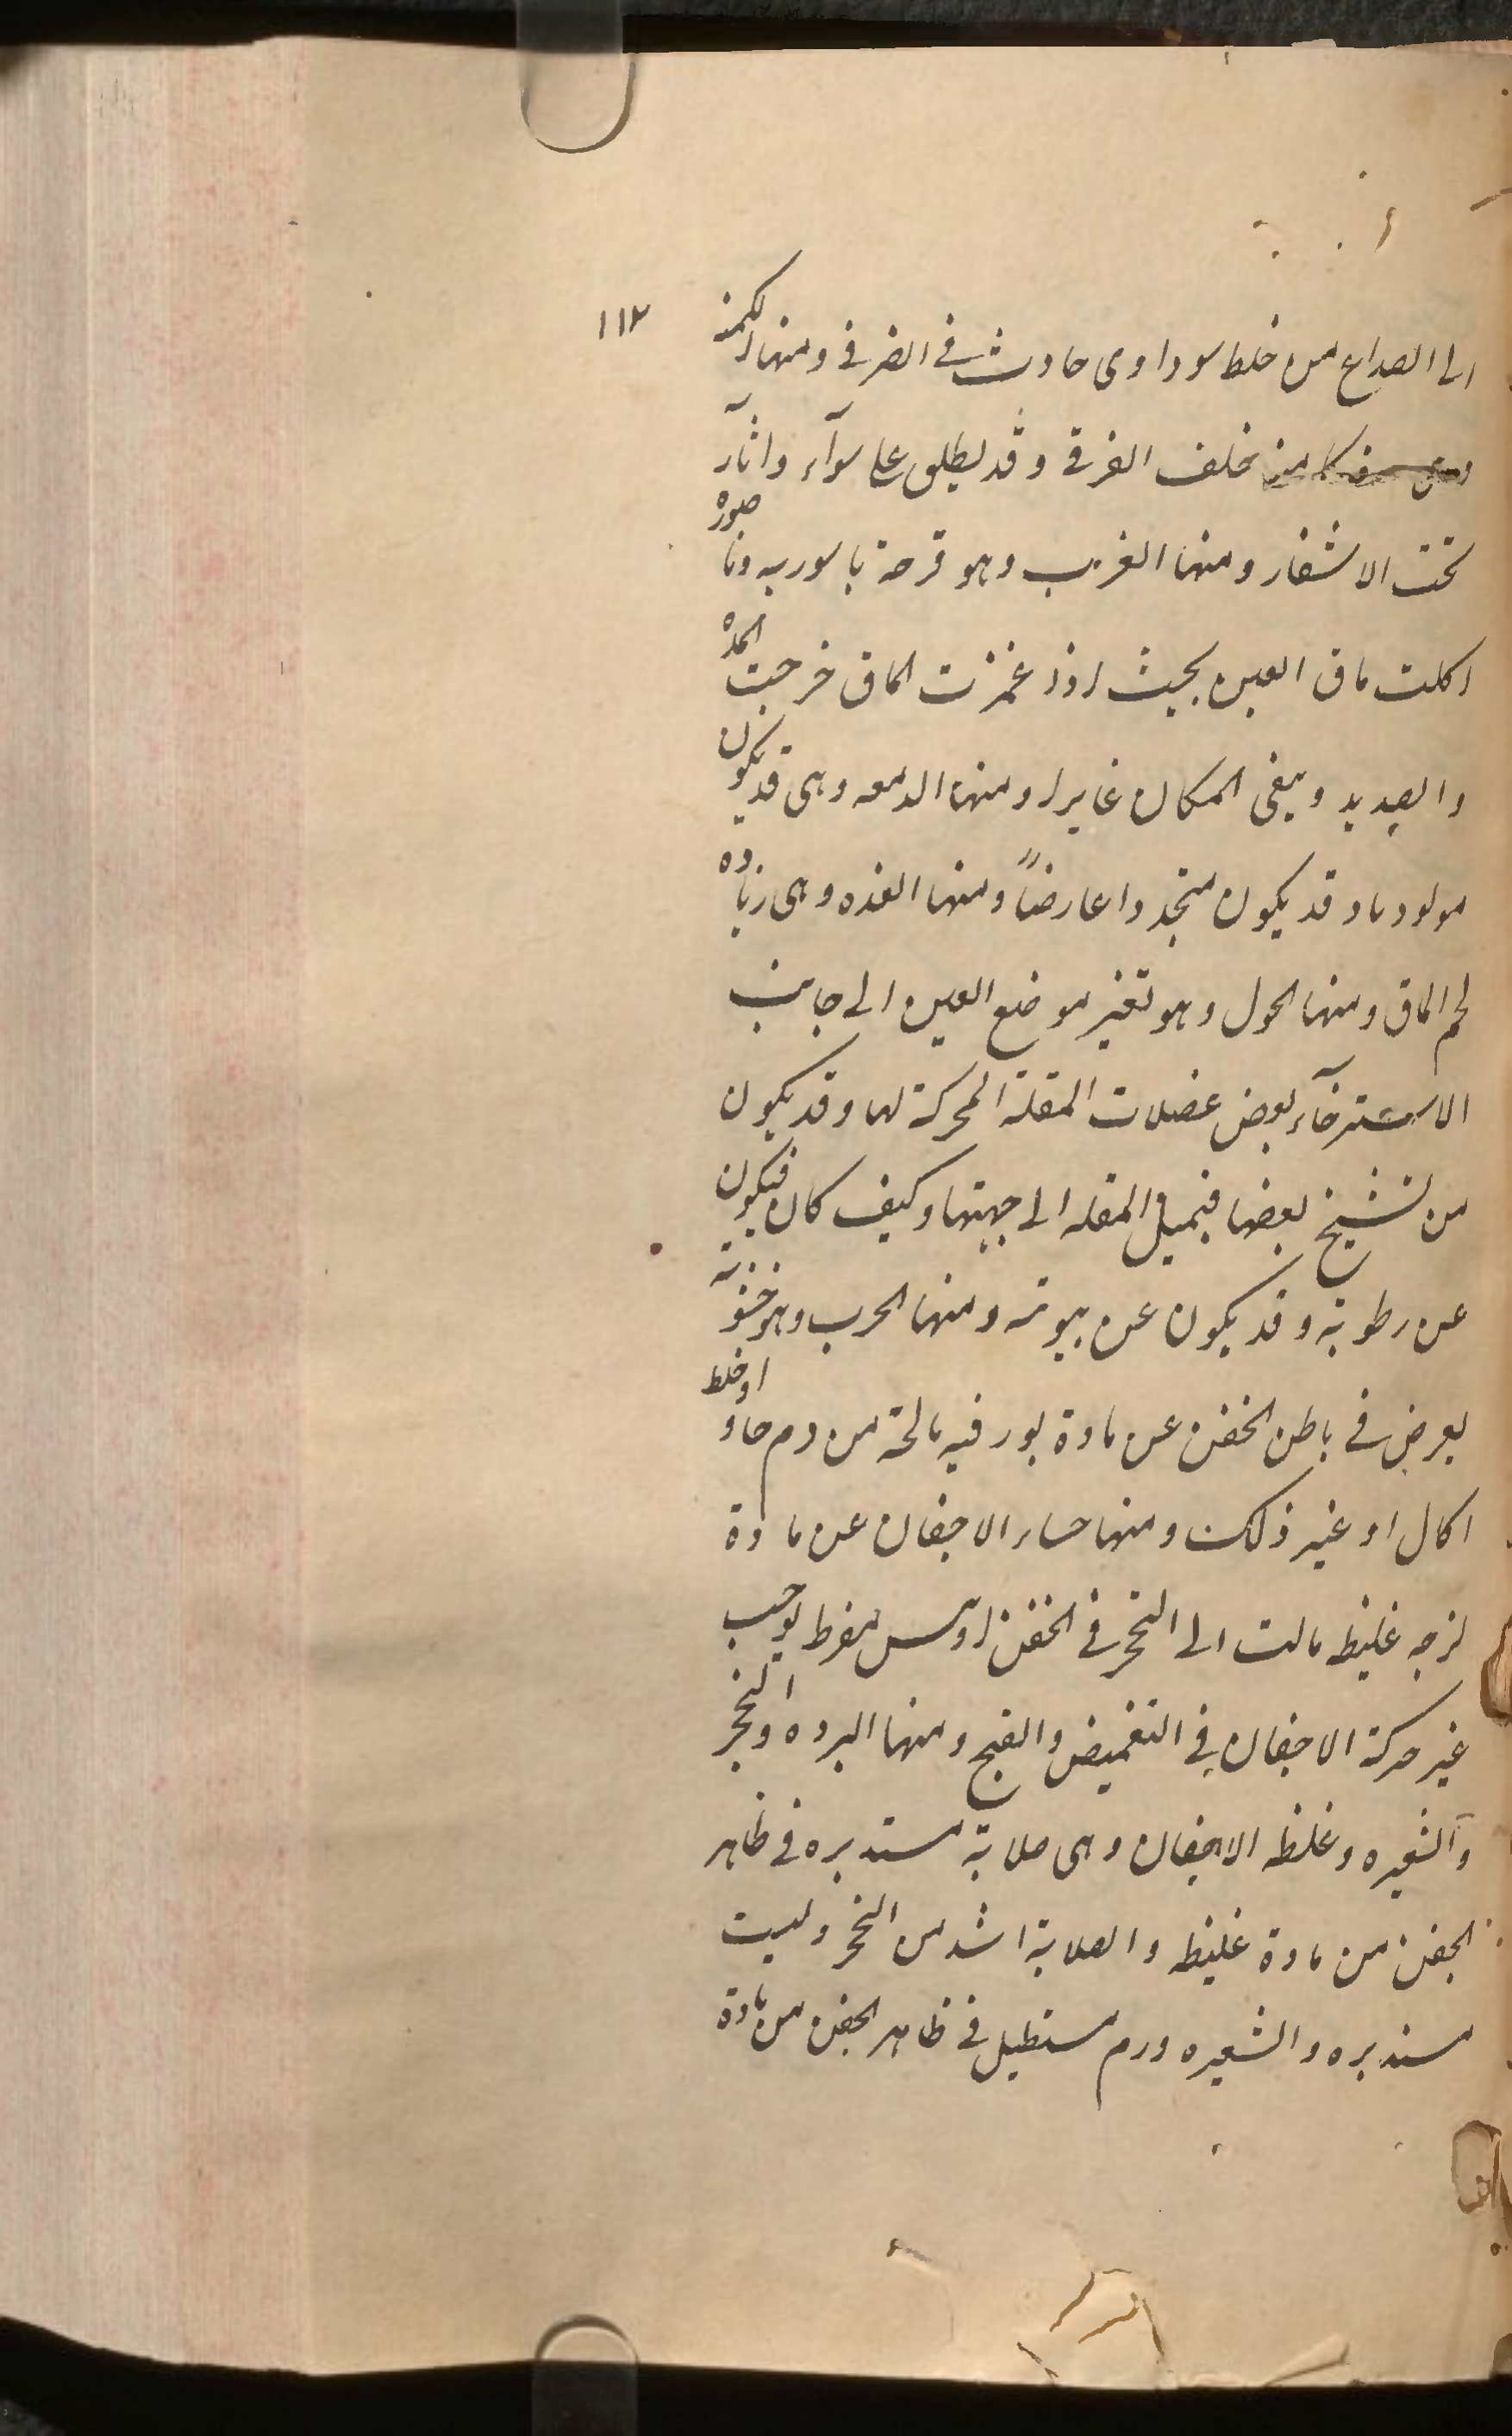 ١١٢
الى الصداع من خلط سوداوى حادث فى القرنى ومنها الكمنه
خلف القرنى وقد يطلق على سوآء وآثار
تحت الاشفار ومنها الغرب وهو قرحة باسوريه وناصوره
اكلت ماق العين بحيث اذا غمزت الماق خرجت المده
والصديد ويبقى المكان غايرا ومنها الدمعه وهى قد يكون
مولودا وقد يكون متجددا عارضاً ومنها الغده وهى زياده
لحم الماق ومنها الحول وهو تغير موضع العين الى جانب
الاسترخآء بعض عضلات المقلة المحركة لها وقد يكون
من تشنج بعضها فيميل المقله الى جهتها وكيف كان فيكون
عن رطوبة وقد يكون عن يبوسه ومنها الجرب وهو خشونة
يعرض فى باطن الجفن عن مادة بورقيه مالحة من دم حاد او خلط
اكال او غير ذلك ومنها جساء الاجفان عن مادة
لزجه غليظه مالت الى التحجر فى الجفن او يبس مفرط يوجب
غير حركة الاجفان فى التغميض والفتح ومنها البرده والتحجر
والشعيره وغلظ الاجفان وهى صلابة مستديره فى ظاهر
الجفن من مادة غليظه والصلابة اشد من التحجر وليست
مستديره والشعيره ورم مستطيل فى ظاهر الجفن من مادة